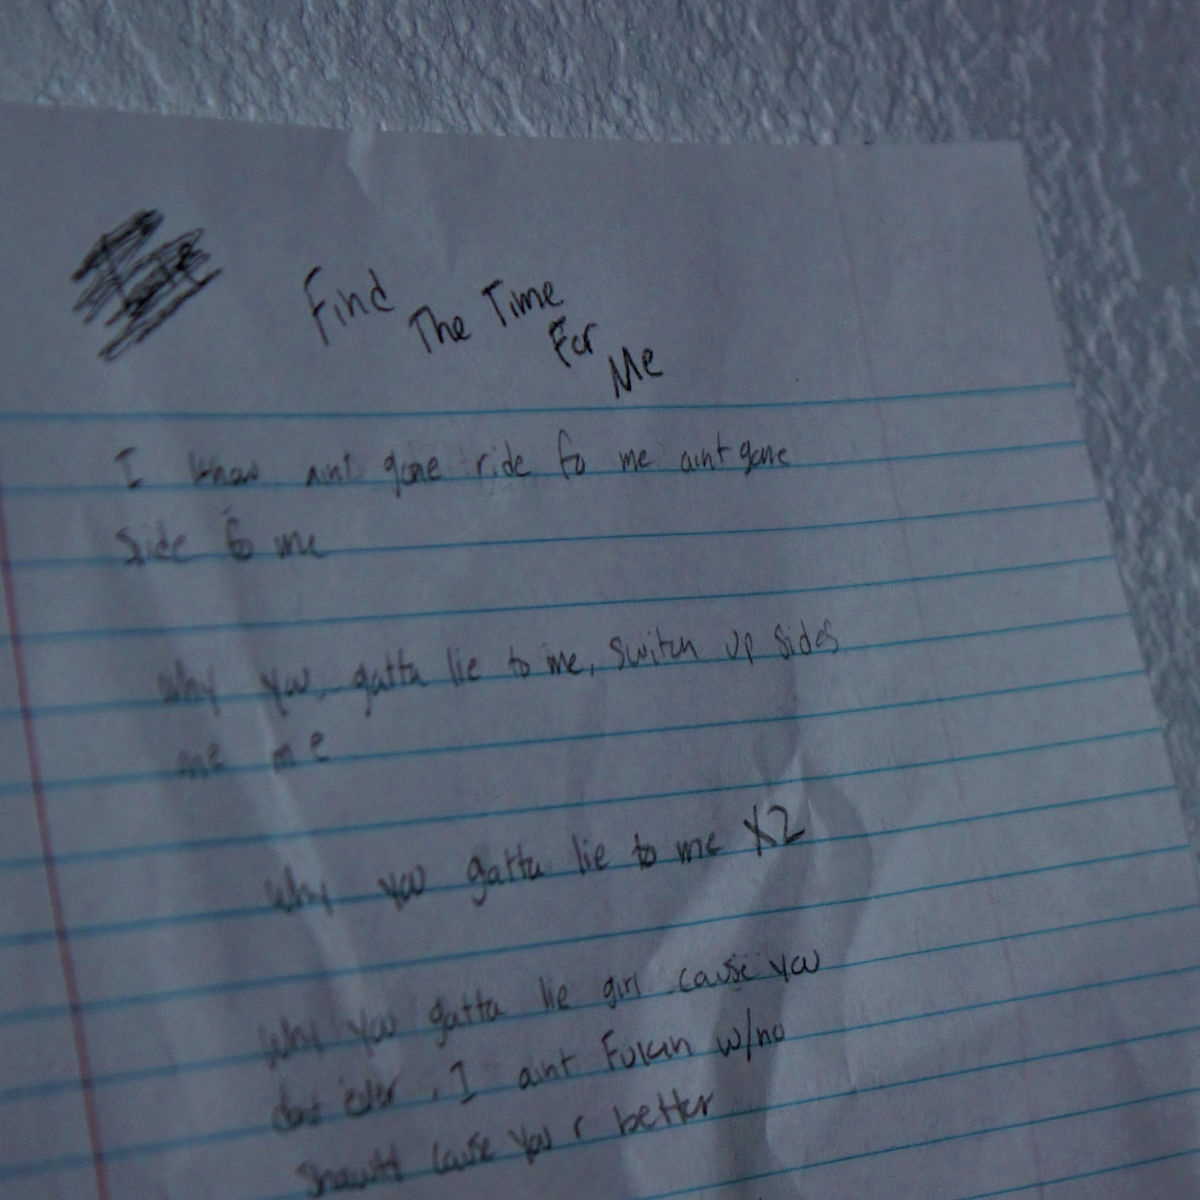 Find The Time For Me
I know aint gone ride fo me aint gone
side fo me
Why you gatta lie to me, switch up sides
one me
Why you gatta lie to me X2
Why you gatta lie girl cause you
dont ever, I aint Fukin w/no
shawtt cause you r better